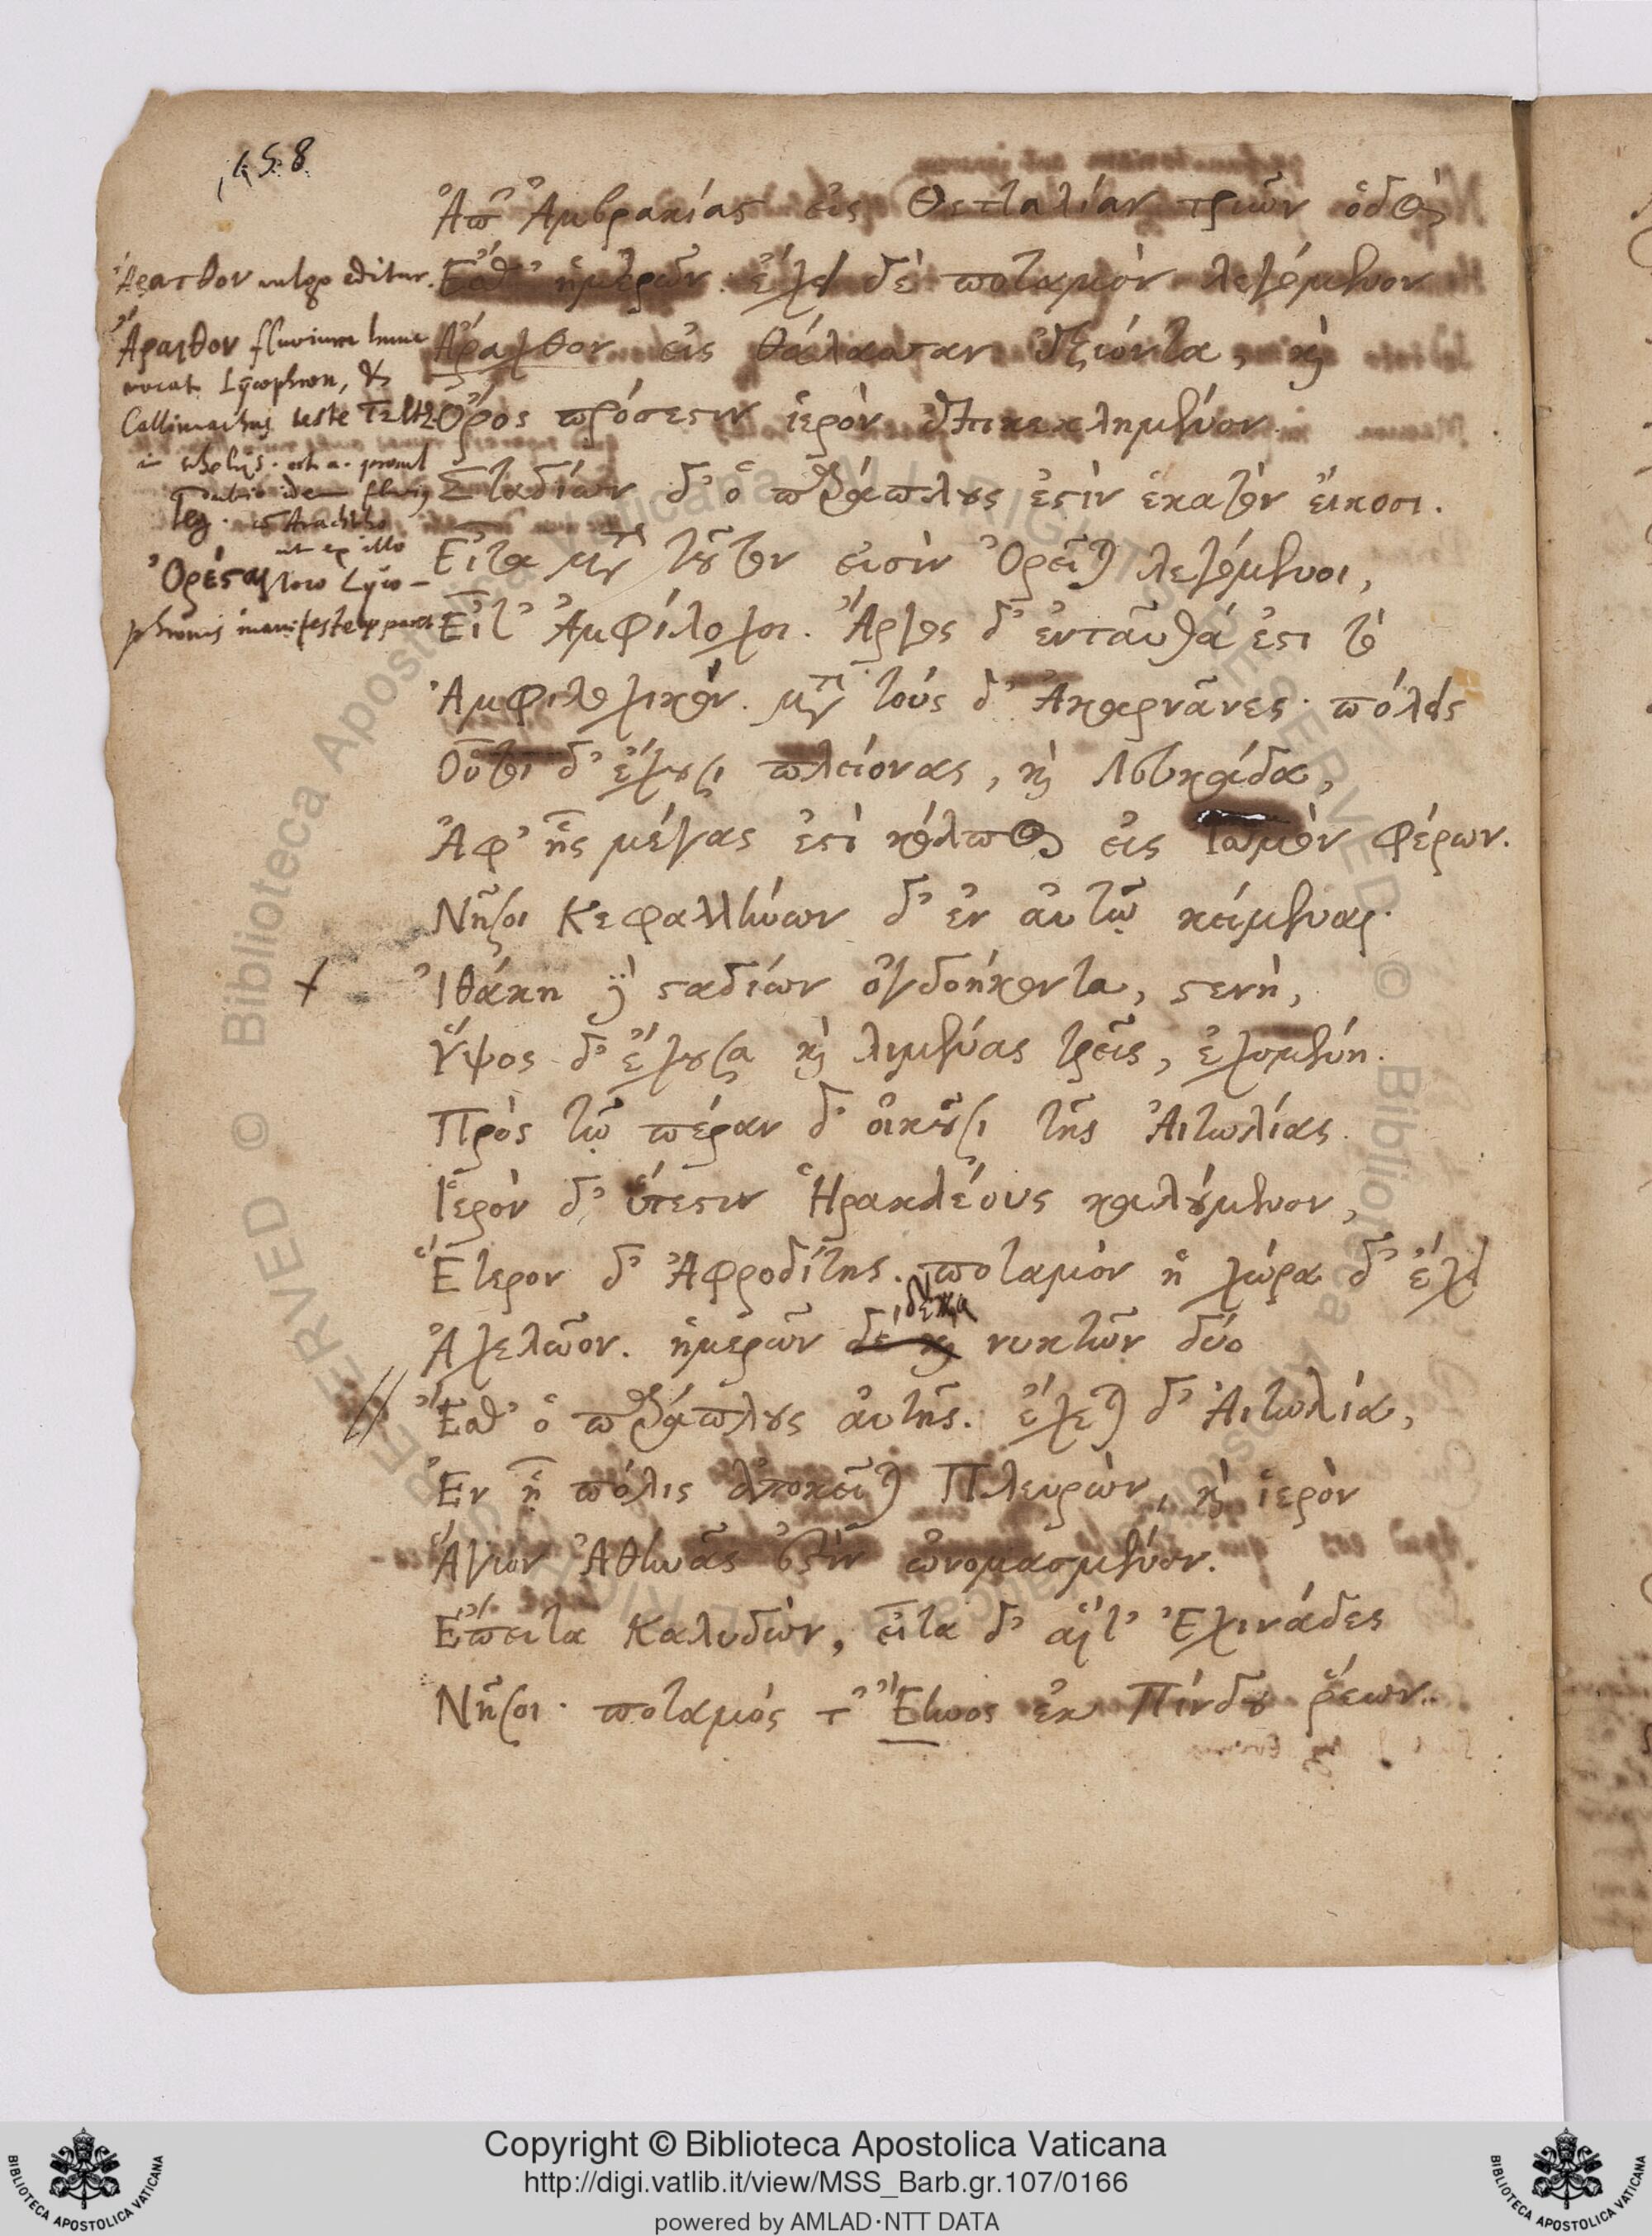 158
Ἀπ' Ἀμβρακίας εἰς Θετταλίαν τριῶν ὁδὸς
Ἔσθ' ἡμερῶν. ἔχει δὲ ποταμὸν λεγόμενον
Ἄραχθον εἰς θάλατταν ἐξιόντα, καὶ
Ὄρος πρόσεστιν ἱερὸν ἐπικεκλημένον.
Σταδίων δ' ὁ παράπλους ἐστὶν ἑκατὸν εἴκοσι.
Εἶτα μετὰ τοῦτον εἰσὶν Ὀρεῖται λεγόμενοι,
Εἶτ' Ἀμφίλοχοι. Ἄργος δ' ἐνταῦθά ἐστι τὸ
Ἀμφιλοχικόν. μετὰ τούς δ' Ἀκαρνᾶνες. πόλεις
Οὗτοι δ' ἔχουσι πλείονας, καὶ Λευκάδα,
Ἀφ' ἧς μέγας ἐστὶ κόλπος εἰς φέρων.
Νῆσοι Κεφαλλήνων δ' ἐν αὐτῷ κείμεναι.
Ἰθάκη γὰρ σταδίων ὀγδοήκοντα, στενὴ,
Ὕψος δ' ἔχουσα καὶ λιμένας τρεῖς, ἐχομένη.
Πρὸς τῷ πέραν δ' οἰκοῦσι τῆς Αἰτωλίας.
Ἱερὸν δ' ὕπεστιν Ἡρακλέους καλούμενον,
Ἕτερον δ' Ἀφροδίτης. ποταμὸν ἡ χώρα δ' ἔχει
Ἀχελῷον. ἡμερῶν δὲ καὶ δέκα νυκτῶν δύο
Ἔσθ' ὁ παράπλους αὐτῆς. ἔχεται δ' Αἰτωλία,
Ἐν ᾗ πόλις ἀποκεῖται Πλευρὼν, καὶ ἱερὸν
Ἅγιον Ἀθηνᾶς ἐστὶν ὠνομασμένον.
Ἔπειτα Καλυδὼν, εἶτα δ' αἵτ' Ἐχινάδες
Νῆσοι. ποταμός τ' Εὔηνος ἐκ Πίνδου ῥέων.
Ἄρατθον vulgo editur.
Ἄραιθον fluvium hunc
vocat Lycophron, &
Callimachus teste Tzetz
in scholijs.
Ὀρέσται
Lyco-
phronis manifeste
Copyright © Biblioteca Apostolica Vaticana
http://digi.vatlib.it/view/MSS_Barb.gr.107/0166
powered by AMLAD·NTT DATA
BIBLIOTECA APOSTOLICA VATICANA
BIBLIOTECA APOSTOLICA VATICANA